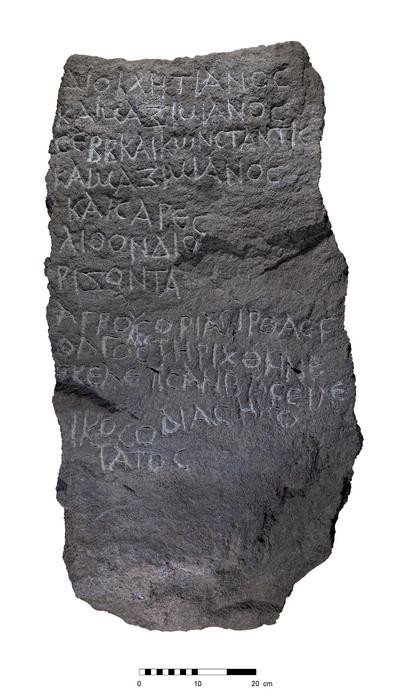 ΔΙΟΚΛΗΤΙΑΝΟC
ΚΑΙ ΜΑΞΙΜΙΑΝΟC
CΕΒΒ ΚΑΙ ΚΩΝCΤΑΝΤΙC
ΚΑΙ ΜΑΞΙΜΙΑΝΟC
ΚΑΙCΑΡΕC
ΛΙΘΟΝ ΔΙΟ
ΡΙΖΟΝΤΑ
ΑΓΡΟΥC ΟΡΙΑ
CΤΗΡΙΧΘΗΝΕ
ΕΚΕΛΕΥCΑΝ
ΙΚΟC Ο ΔΙΑCΗΜΟ
ΤΑΤΟC
0 10 20 cm